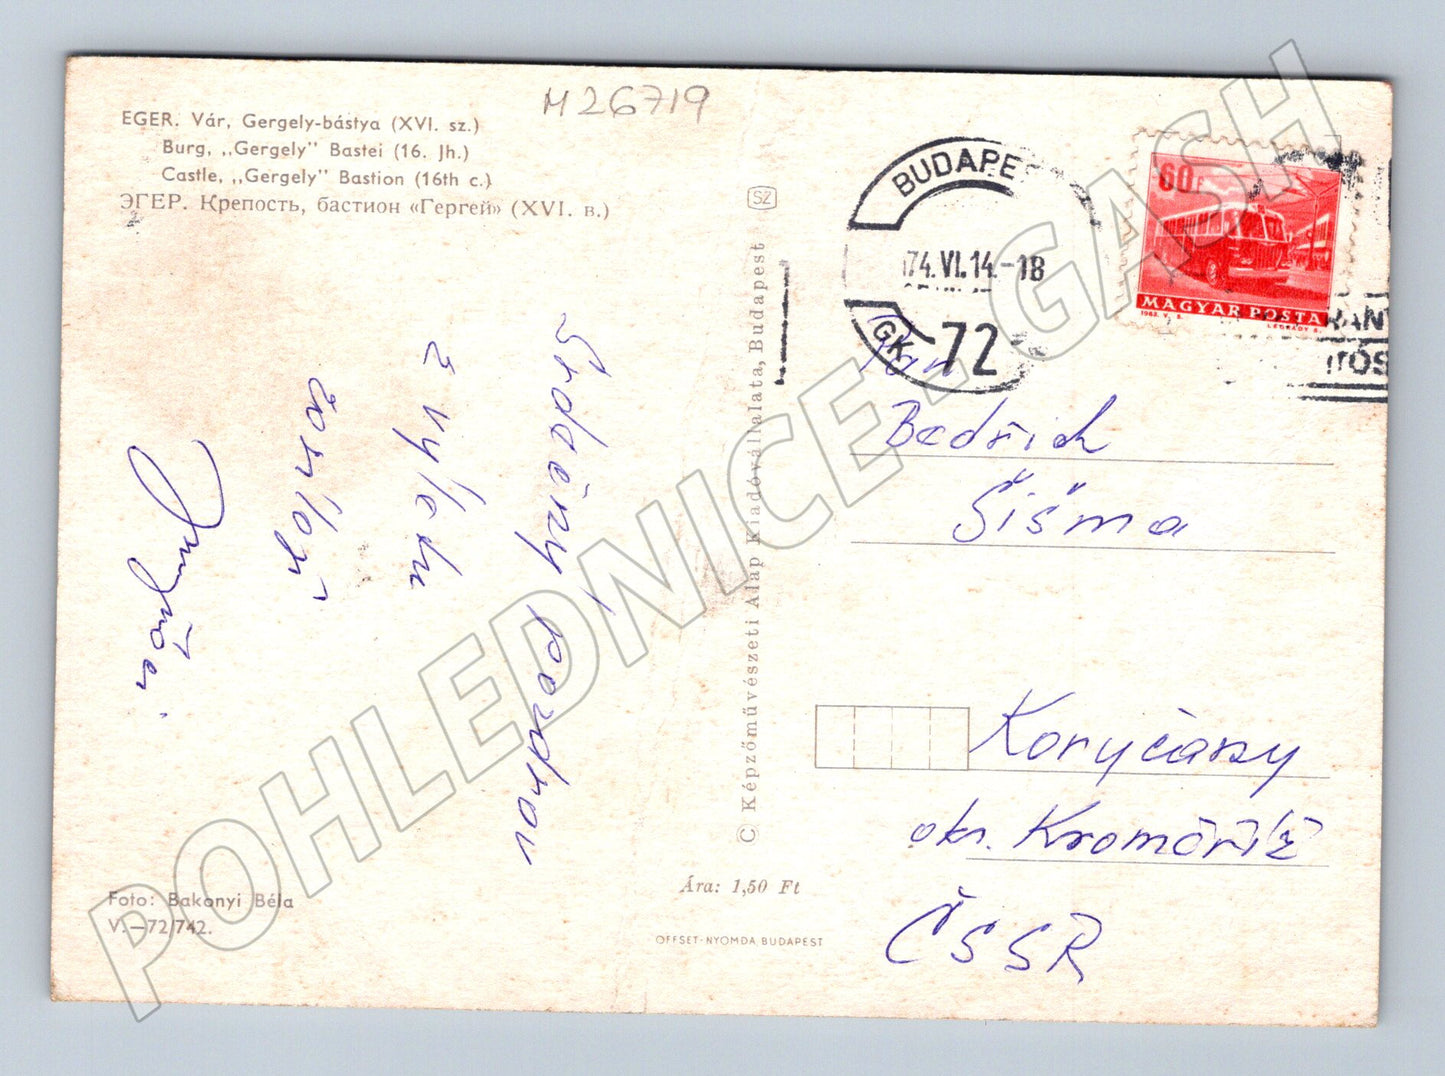 M 26719
EGER. Vár, Gergely-bástya (XVI. sz.)
Burg, „Gergely” Bastei (16. Jh.)
Castle, „Gergely” Bastion (16th c.)
ЭГЕР. Крепость, бастион «Гергей» (XVI. в.)
SZ
BUDAPE
74. VI. 14.-18
GK 72
60f
MAGYAR POSTA
Srdečný pozdrav
z výletu
Pan
Bedřich
Šišma
Koryčany
okr. Kroměříž
ČSSR
© Képzőművészeti Alap Kiadóvállalata, Budapest
Foto: Bakonyi Béla
V.—72/742.
Ára: 1,50 Ft
OFFSET-NYOMDA, BUDAPEST
POHLEDNICE - GASH